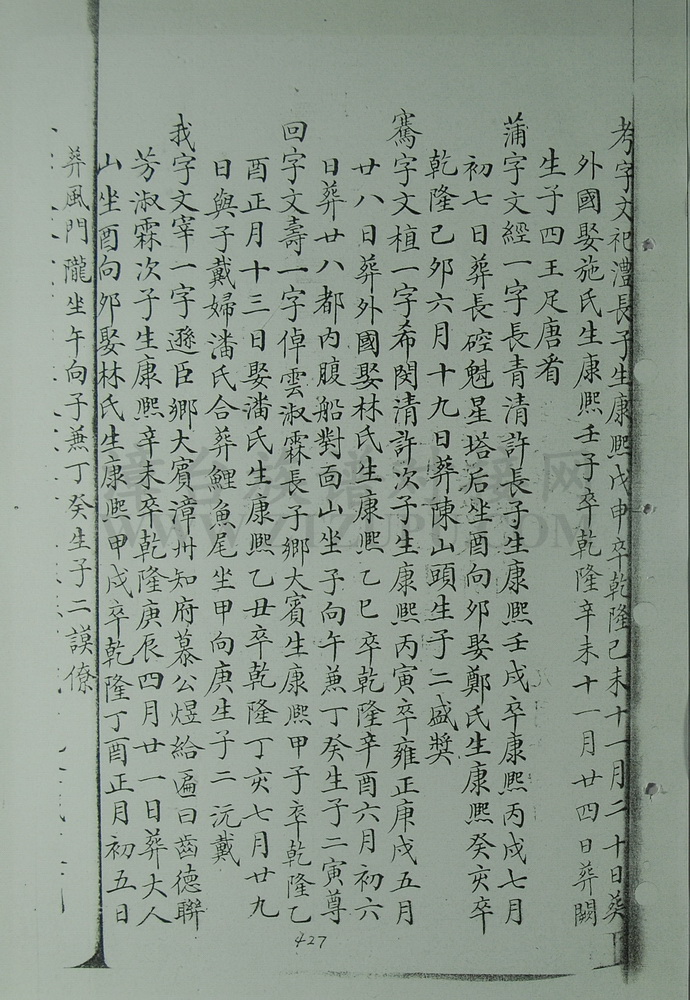 考字文祀澧長子生康熙戊申卒乾隆己未十一月二十日葬
外國娶施氏生康熙壬子卒乾隆辛未十一月廿四日葬闕
生子四王足唐肴
蒲字文經一字長青清許長子生康熙壬戌卒康熙丙戌七月
初七日葬長硿魁星塔后坐酉向夘娶鄭氏生康熙癸亥卒
乾隆己夘六月十九日葬陳山頭生子二盛獎
騫字文植一字希閔清許次子生康熙丙寅卒雍正庚戌五月
廿八日葬外國娶林氏生康熙乙巳卒乾隆辛酉六月初六
日葬廿八都内腹船對面山坐子向午兼丁癸生子二寅尊
回字文壽一字倬雲淑霖長子鄉大賓生康熙甲子卒乾隆乙
酉正月十三日娶潘氏生康熙乙丑卒乾隆丁亥七月廿九
日與子戴婦潘氏合葬鯉魚尾坐甲向庚生子二沅戴
我字文宰一字遜臣鄉大賓漳州知府慕公煜給匾曰齒德聯
芳淑霖次子生康熙辛未卒乾隆庚辰四月廿一日葬大人
山坐酉向夘娶林氏生康熙甲戌卒乾隆丁酉正月初五日
葬風門隴坐午向子兼丁癸生子二謨僚
427